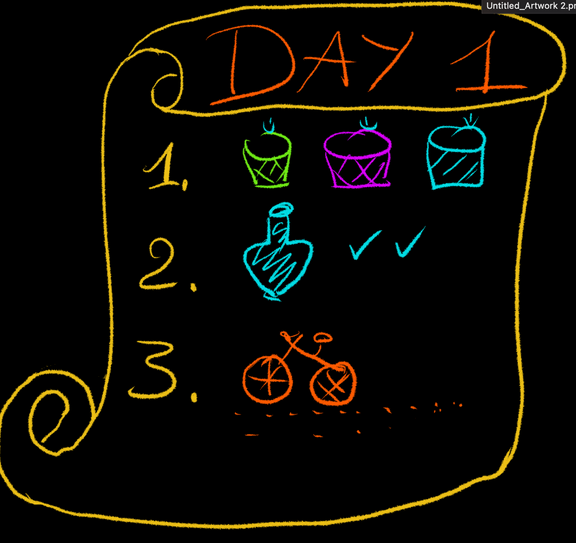 Untitled_Artwork 2.pr
DAY 1
1.
2.
3.